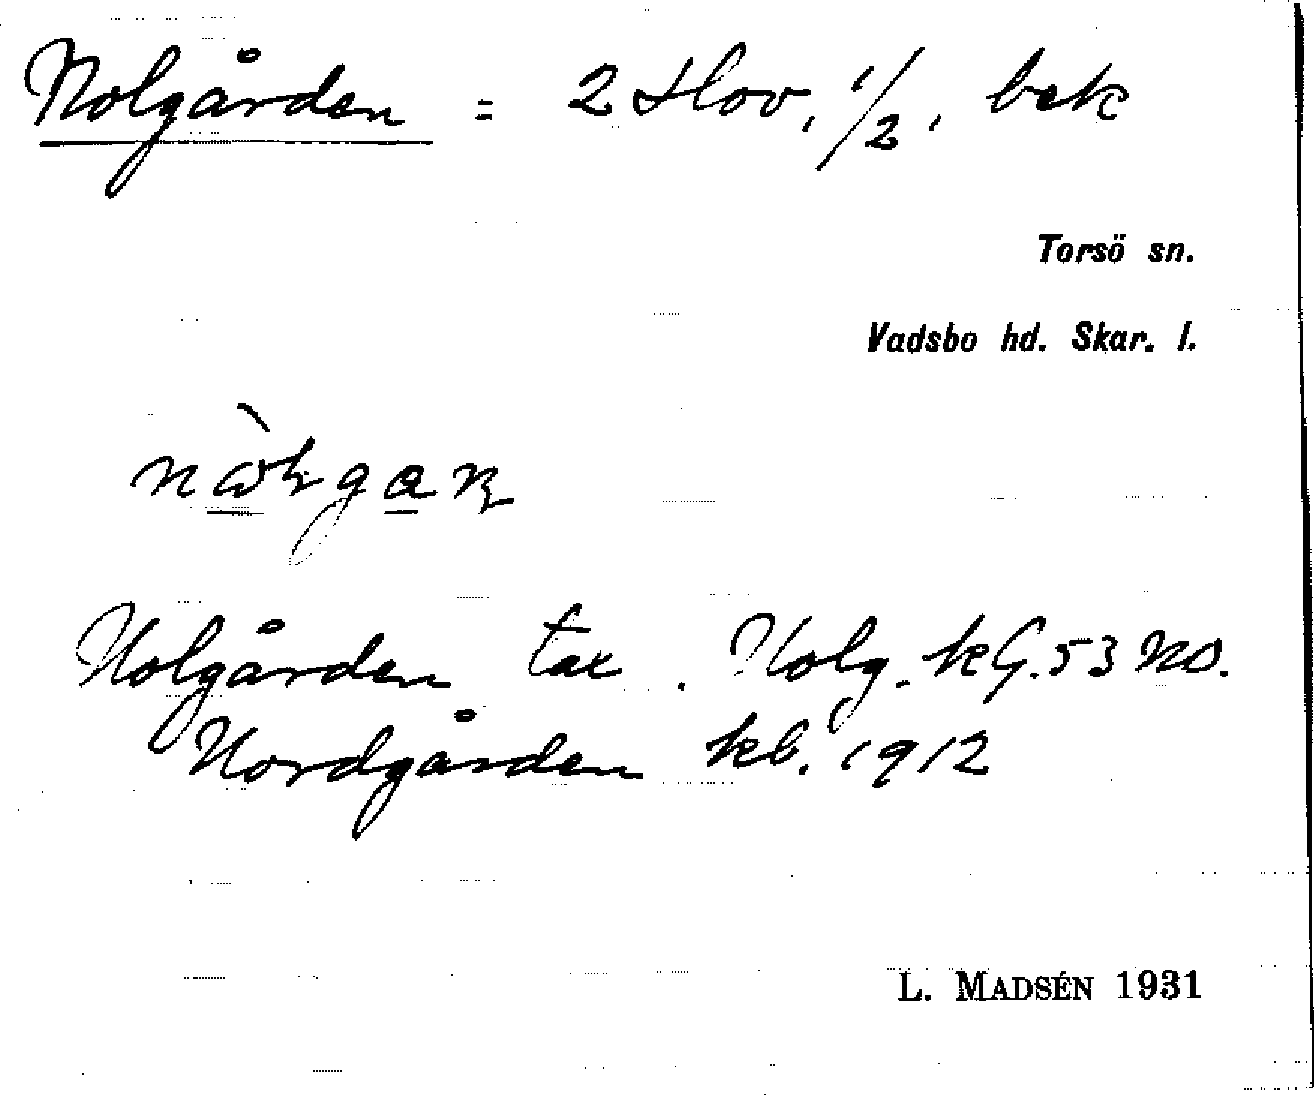 Nolgården = 2 Hov, 1/2, bek
Torsö sn.
Vadsbo hd. Skar. l.
Nolgården tax. Nolg. kG. 53 NO.
Nordgården kb. 1912
L. MADSÉN 1931